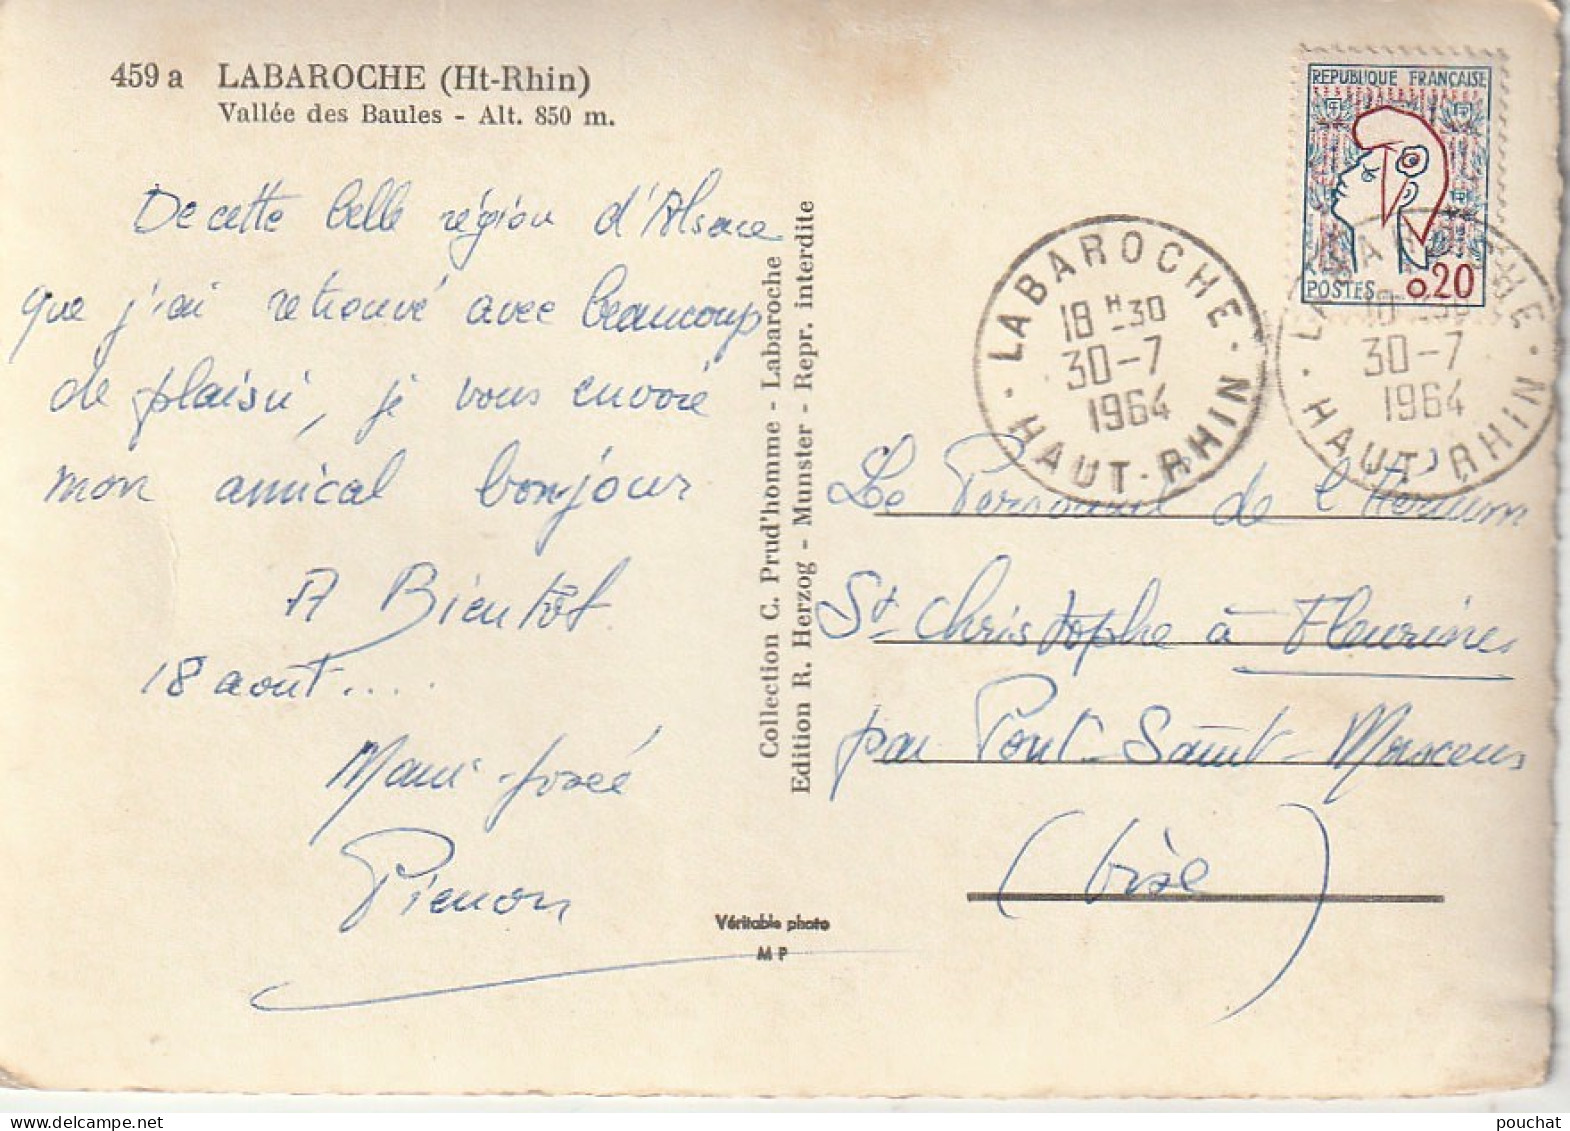 459 a LABAROCHE (Ht-Rhin)
Vallée des Baules - Alt. 850 m.
De cette belle région d'Alsace
que j'ai retrouvé avec beaucoup
de plaisir, je vous envoie
mon amical bonjour
A Bientôt
18 août....
Marie-josée
Pierron
Collection C. Prud'homme - Labaroche
Edition R. Herzog - Munster - Repr. interdite
Véritable photo
M P
REPUBLIQUE FRANÇAISE
POSTES 0,20
LABAROCHE
18 H 30
30-7
1964
HAUT-RHIN
LABAROCHE
18 H 30
30-7
1964
HAUT-RHIN
Le Personnel de l'
St Christophe à Fleurines
par Pont-Saint-Maxence
(Oise)
www.delcampe.net
pouchat